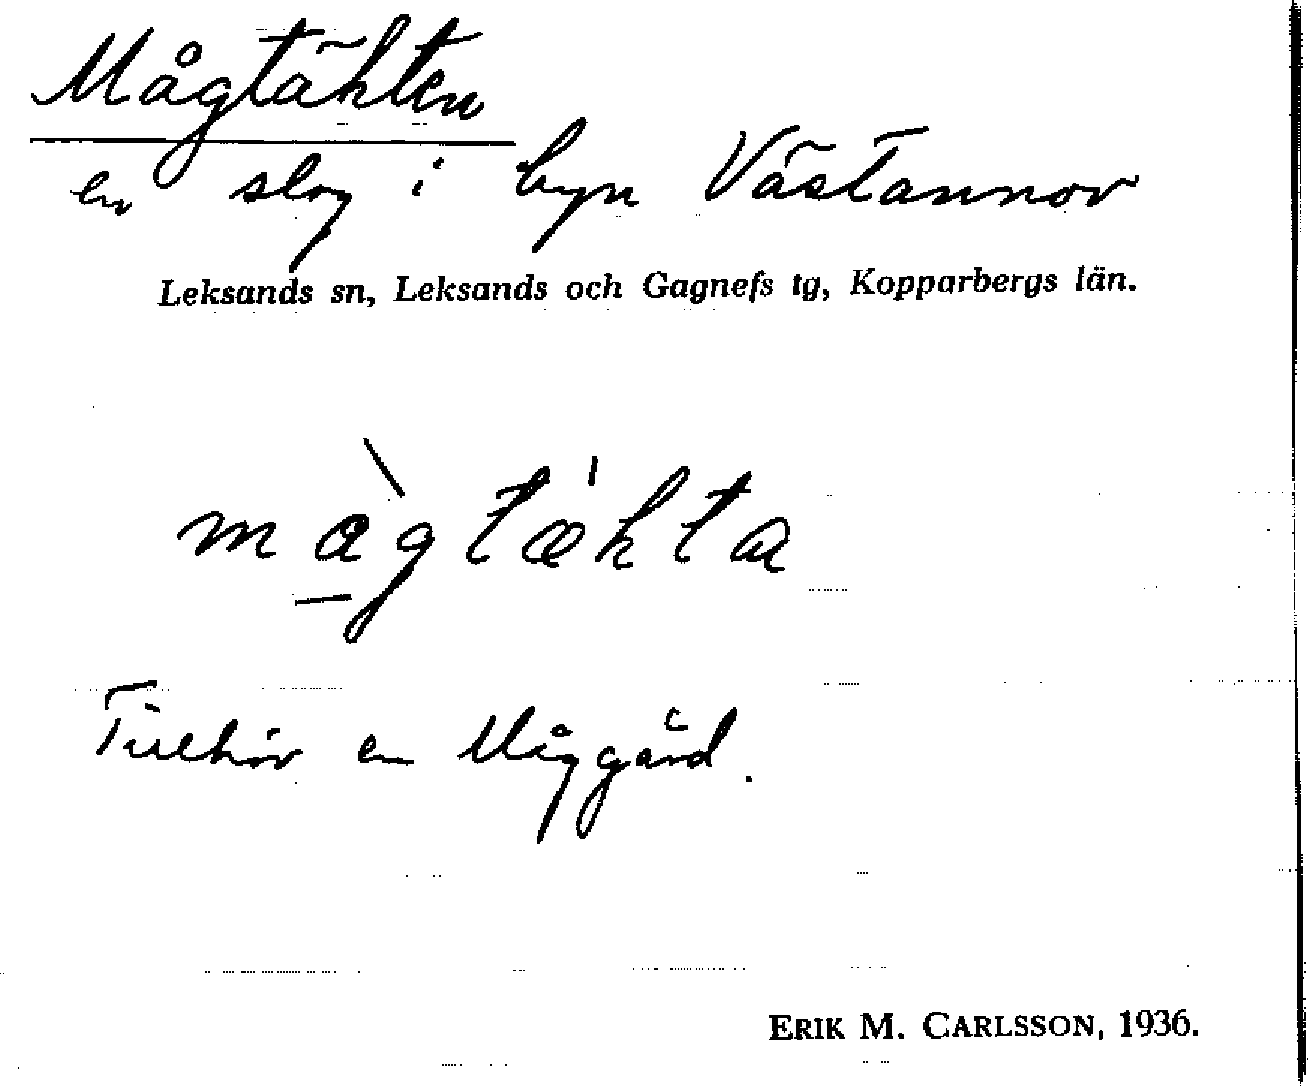 Mågtäkten
en slog i byn Västannor
Leksands sn, Leksands och Gagnefs tg, Kopparbergs län.
màgtækta
Tillhör en Måggård.
ERIK M. CARLSSON, 1936.